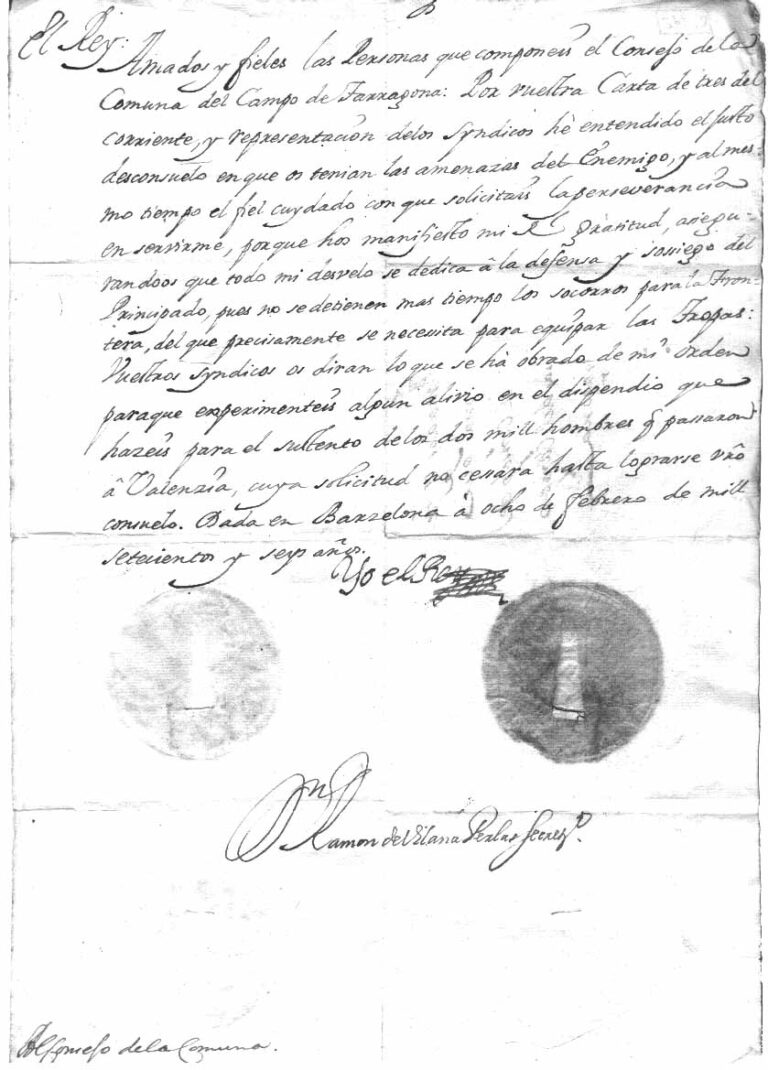 El Rey:
Amados y fieles las Personas que componeis el Consejo de la
Comuna del Campo de Tarragona: Por vuestra Carta de tres del
corriente, y representacion delos Syndicos hè entendido el justo
desconsuelo en que os tenian las amenazas del Enemigo, y al mes=
mo tiempo el fiel cuydado con que solicitais la perseverancia
en servirme, porque hos manifiesto mi Rl gratitud, assegu=
randoos que todo mi desvelo se dedica â la defensa y sossiego del
Principado, pues no se detienen mas tiempo los socorros para la Fron=
tera, del que precisamente se necesita para equipar las Tropas=
Vuestros Syndicos os diran lo que se hà obrado de mi orden
paraque experimenteis algun alivio en el dispendio que
hazeis para el sustento delos dos mill hombres q̃ passaron
â Valenzia, cuya solicitud no cesarà hasta lograrse vrõ
consuelo. Dada en Barzelona à ocho de febrero de mill
setecientos y seys años.
Yo el Rey
Dn Ramon de Vilana Perlas Secretro
Al Consejo de la Comuna.